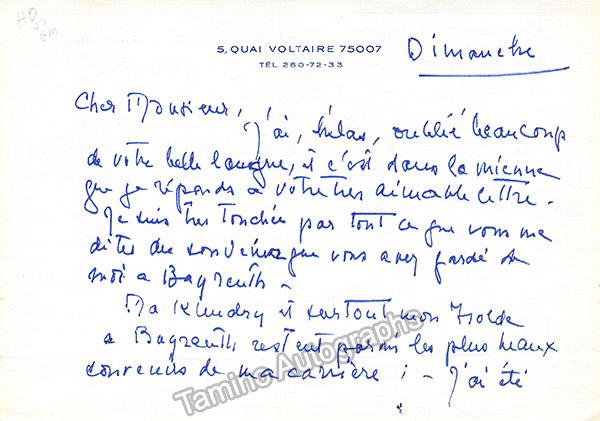 5, QUAI VOLTAIRE 75007
TÉL. 260-72-33
Dimanche
Cher Monsieur,
J'ai, hélas, oublié beaucoup
de votre belle langue, et c'est dans la mienne
que je réponds à votre très aimable lettre.
Je suis très touchée par tout ce que vous me
dites du souvenir que vous avez gardé de
moi à Bayreuth -
Ma Kundry et surtout mon Isolde
à Bayreuth restent parmi les plus beaux
souvenirs de ma carrière ; - J'ai été
Tamino Autographs